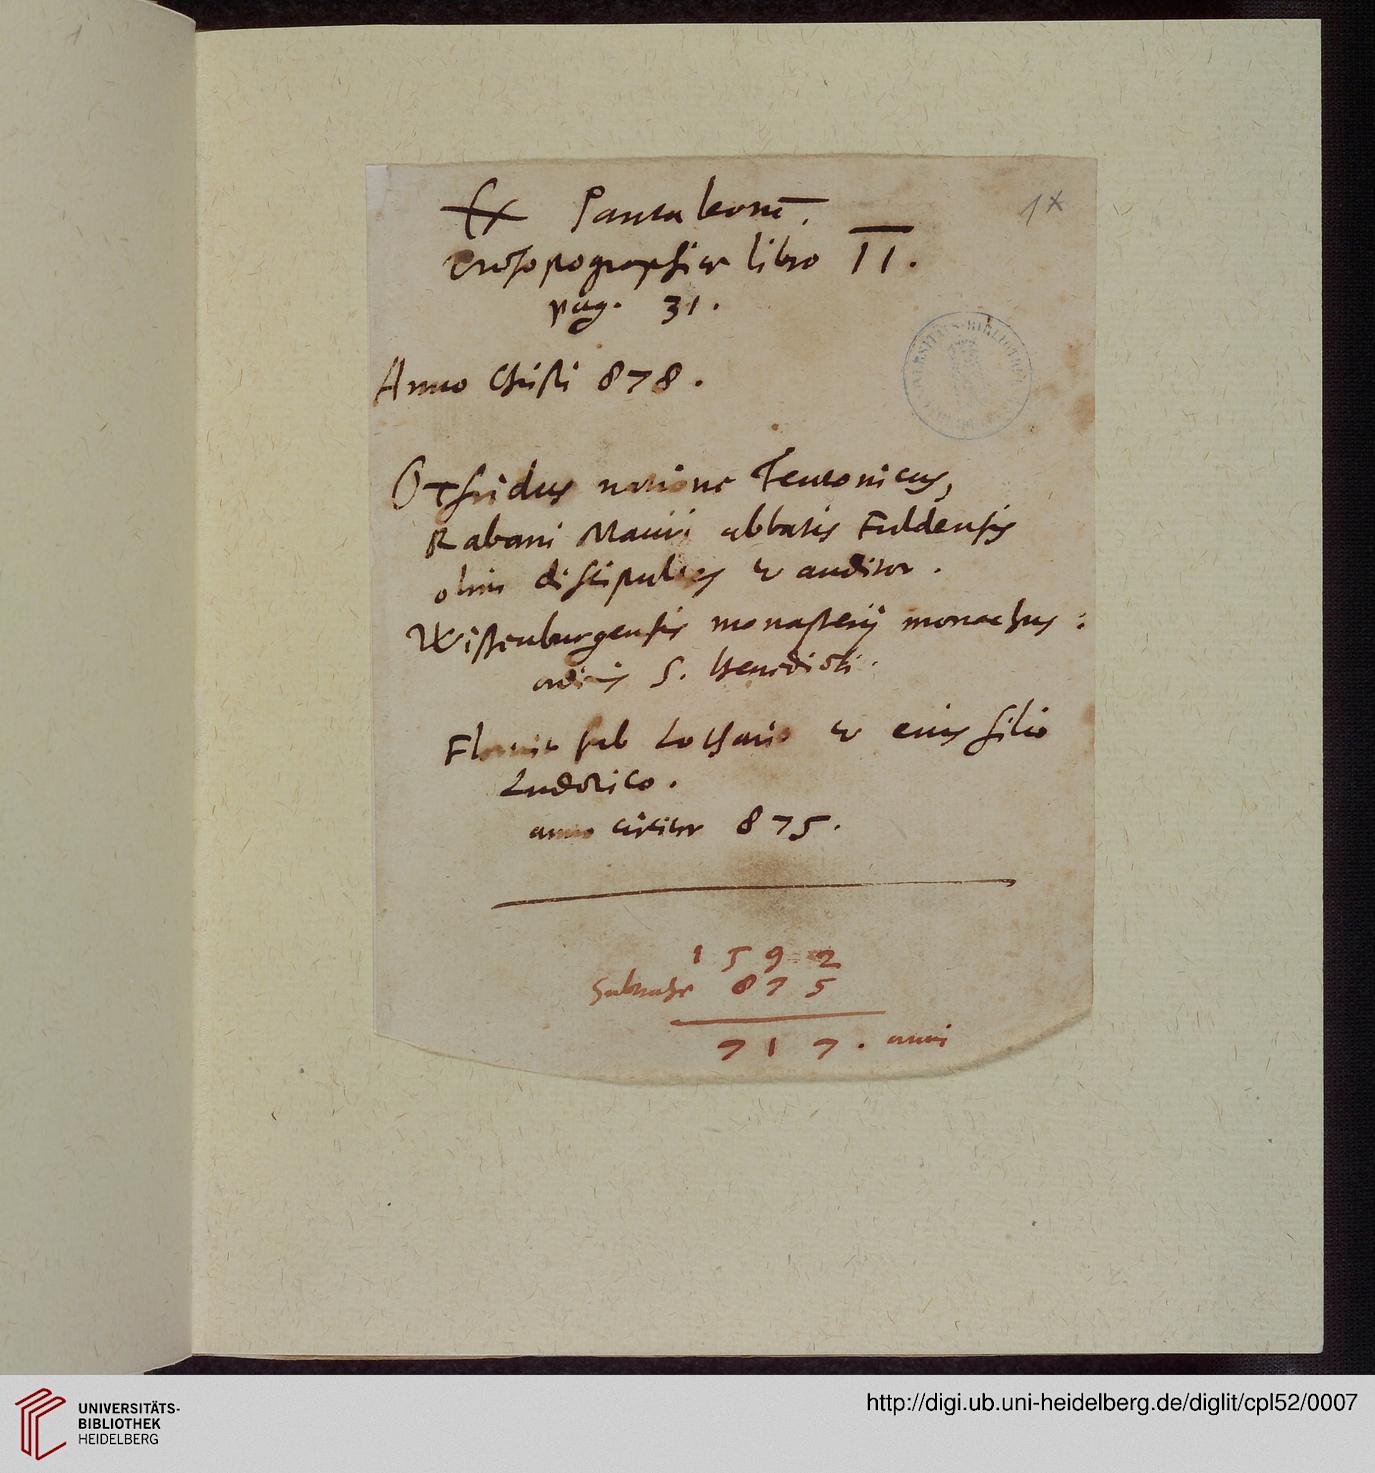 1
1*
Ex Pantaleonis
Prosopographiae libro II.
pag. 31.
Anno Christi 878.
Otfridus natione Teutonicus,
Rabani Mauri abbatis Fuldensis
olim discipulus et auditor.
Wissenburgensis monasterij monachus:
ordinis S. Benedicti.
Floruit sub Lothario et eius filio
Ludovico.
anno circiter 875.
1592
subtrahe 875
717. anni
UNIVERSITÄTS-
BIBLIOTHEK
HEIDELBERG
http://digi.ub.uni-heidelberg.de/diglit/cpl52/0007